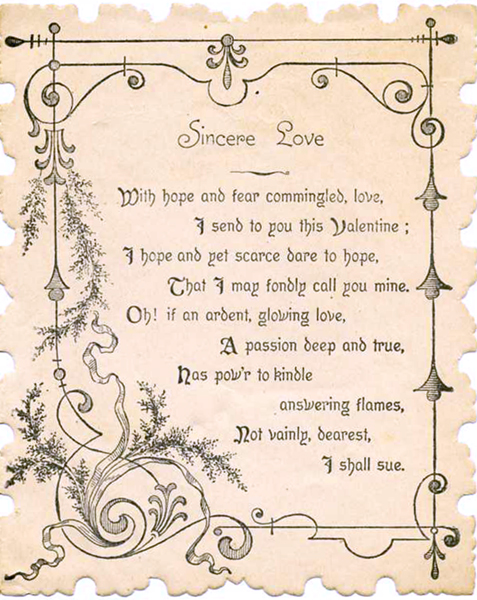 Sincere Love
With hope and fear commingled, love,
I send to you this Valentine ;
I hope and yet scarce dare to hope,
That I may fondly call you mine.
Oh! if an ardent, glowing love,
A passion deep and true,
Has pow'r to kindle
answering flames,
Not vainly, dearest,
I shall sue.